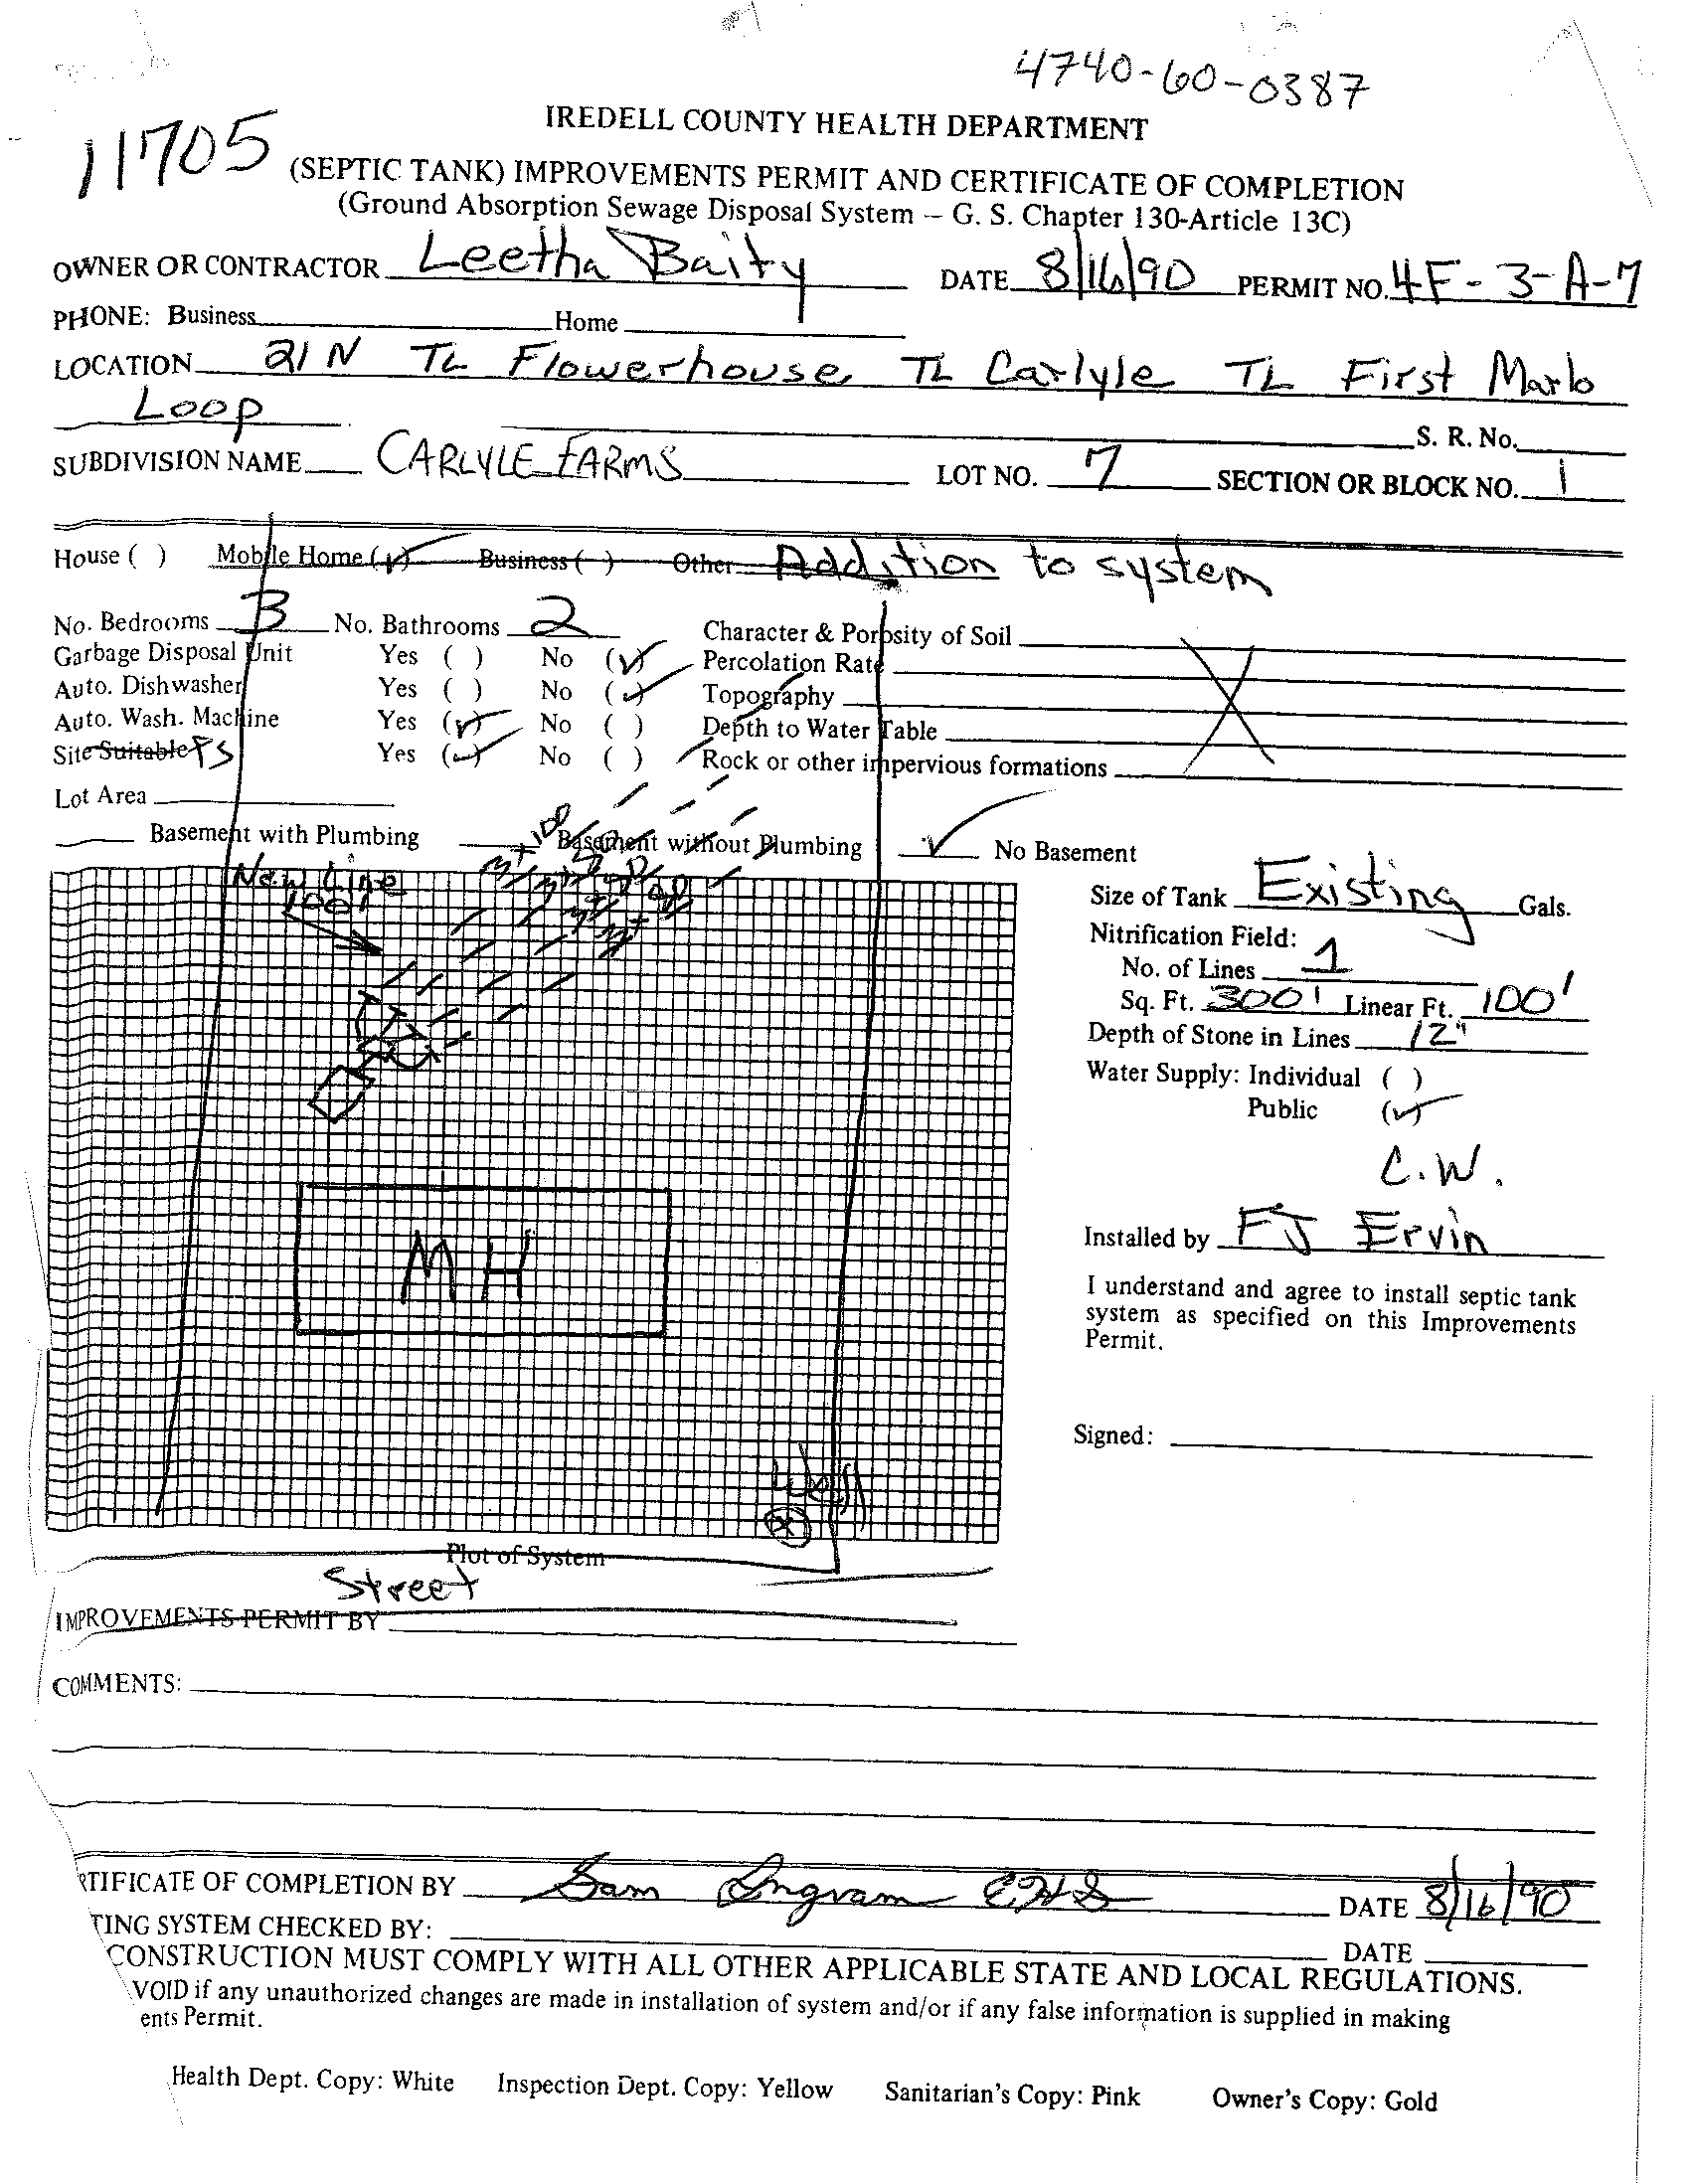 4740-60-0387
11705
IREDELL COUNTY HEALTH DEPARTMENT
(SEPTIC TANK) IMPROVEMENTS PERMIT AND CERTIFICATE OF COMPLETION
(Ground Absorption Sewage Disposal System – G. S. Chapter 130-Article 13C)
OWNER OR CONTRACTOR Leetha Baity DATE 8/16/90 PERMIT NO. 4F-3-A-7
PHONE: Business Home
LOCATION 21 N TL Flowerhouse TL Carlyle TL First Marlo
Loop S. R. No.
SUBDIVISION NAME CARLYLE FARMS LOT NO. 7 SECTION OR BLOCK NO. 1
House ( ) Mobile Home (✓) Business ( ) Other Addition to system
No. Bedrooms 3 No. Bathrooms 2 Character & Porosity of Soil
Garbage Disposal Unit Yes ( ) No (✓) Percolation Rate
Auto. Dishwasher Yes ( ) No (✓) Topography
Auto. Wash. Machine Yes (✓) No ( ) Depth to Water Table
Site Suitable PS Yes (✓) No ( ) Rock or other impervious formations
Lot Area
Basement with Plumbing Basement without Plumbing ✓ No Basement
New Line
100'
Size of Tank Existing Gals.
Nitrification Field:
No. of Lines 1
Sq. Ft. 300' Linear Ft. 100'
Depth of Stone in Lines 12"
Water Supply: Individual ( )
Public (✓)
C.W.
MH
Installed by FJ Ervin
I understand and agree to install septic tank
system as specified on this Improvements
Permit.
Signed:
Well
Plot of System
Street
IMPROVEMENTS PERMIT BY
COMMENTS:
RTIFICATE OF COMPLETION BY Sam Ingram EHS DATE 8/16/90
TING SYSTEM CHECKED BY: DATE
CONSTRUCTION MUST COMPLY WITH ALL OTHER APPLICABLE STATE AND LOCAL REGULATIONS.
VOID if any unauthorized changes are made in installation of system and/or if any false information is supplied in making
ents Permit.
Health Dept. Copy: White Inspection Dept. Copy: Yellow Sanitarian's Copy: Pink Owner's Copy: Gold